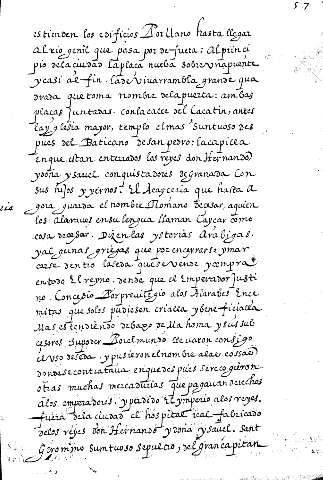 57
estienden los edificios Por llano hasta llegar
al rio genil que pasa por de fuera: Al princi
pio dela ciudad la placa nueba sobre una puente
y casi al fin. la de Vivarrambla grande qua
drada que toma nombre dela puerta: ambas
placas juntadas. con la calle del Cacatin; antes
la yglesia mayor, templo el mas suntuoso des
pues del Baticano de san pedro: la capilla
en que estan enterrados los reyes don Hernando
y doña ysavel conquistadores de granada con
sus hijos y yernos. El Alcayceria que hasta a
gora guarda el nombre Romano de casar, a quien
los alaraves en su lengua llaman Caycar como
cosa de cesar. Dizen las ystorias Arabigas.
y algunas griegas que por encerrarse y mar
carse dentro la seda que se vende y compra
en todo El reyno. dende que el Emperador Justi
no. Concedio Por previlegio alos Alarabes Sce
nitas que solos pudiesen crialla y beneficialla
Mas estendiendo debaxo de Mahoma y sus sub
cesores su poder Por el mundo llevaron consigo
el uso de seda. y pusieron el nombre a la cossa
donde se contratava. en que despues se recogieron
otras muchas mercadurias que pagavan derechos
alos emperadores. y perdido El ymperio alos reyes.
fuera dela ciudad el hospital real fabricado
delos reyes don Hernando y doña ysavel. Sant
Geronimo suntuoso sepulcro, del gran capitan